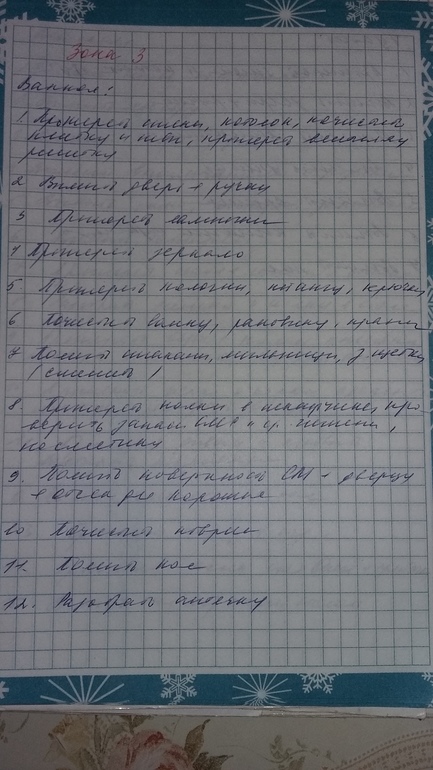 Зона 3
Ванная:
1. Протереть стены, потолок, почистить
плитку и , протереть
решетку
2 Вымыть дверь + ручку
3 Протереть лампочки
4 Протереть зеркало
5 Протереть полочки, штангу, крючки
6 Почистить ванну, раковину, краны
7 Помыть стаканы, мыльницы, з. щетки
(сменить)
8. Протереть полки в шкафчике, про
верить запасы и ср. гигиены,
косметику
9. Помыть поверхность СМ - дверцу
+ отсек для порошка
10 Почистить коврик
11. Помыть пол
12. Разобрать аптечку